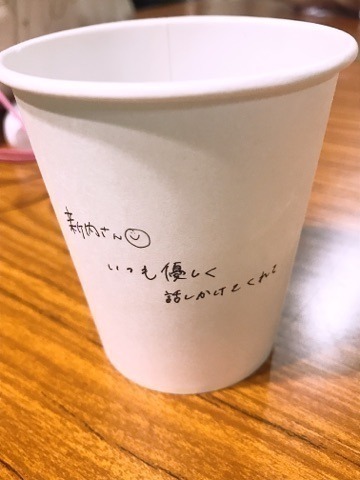 新内さん☺
いつも優しく
話しかけてくれて